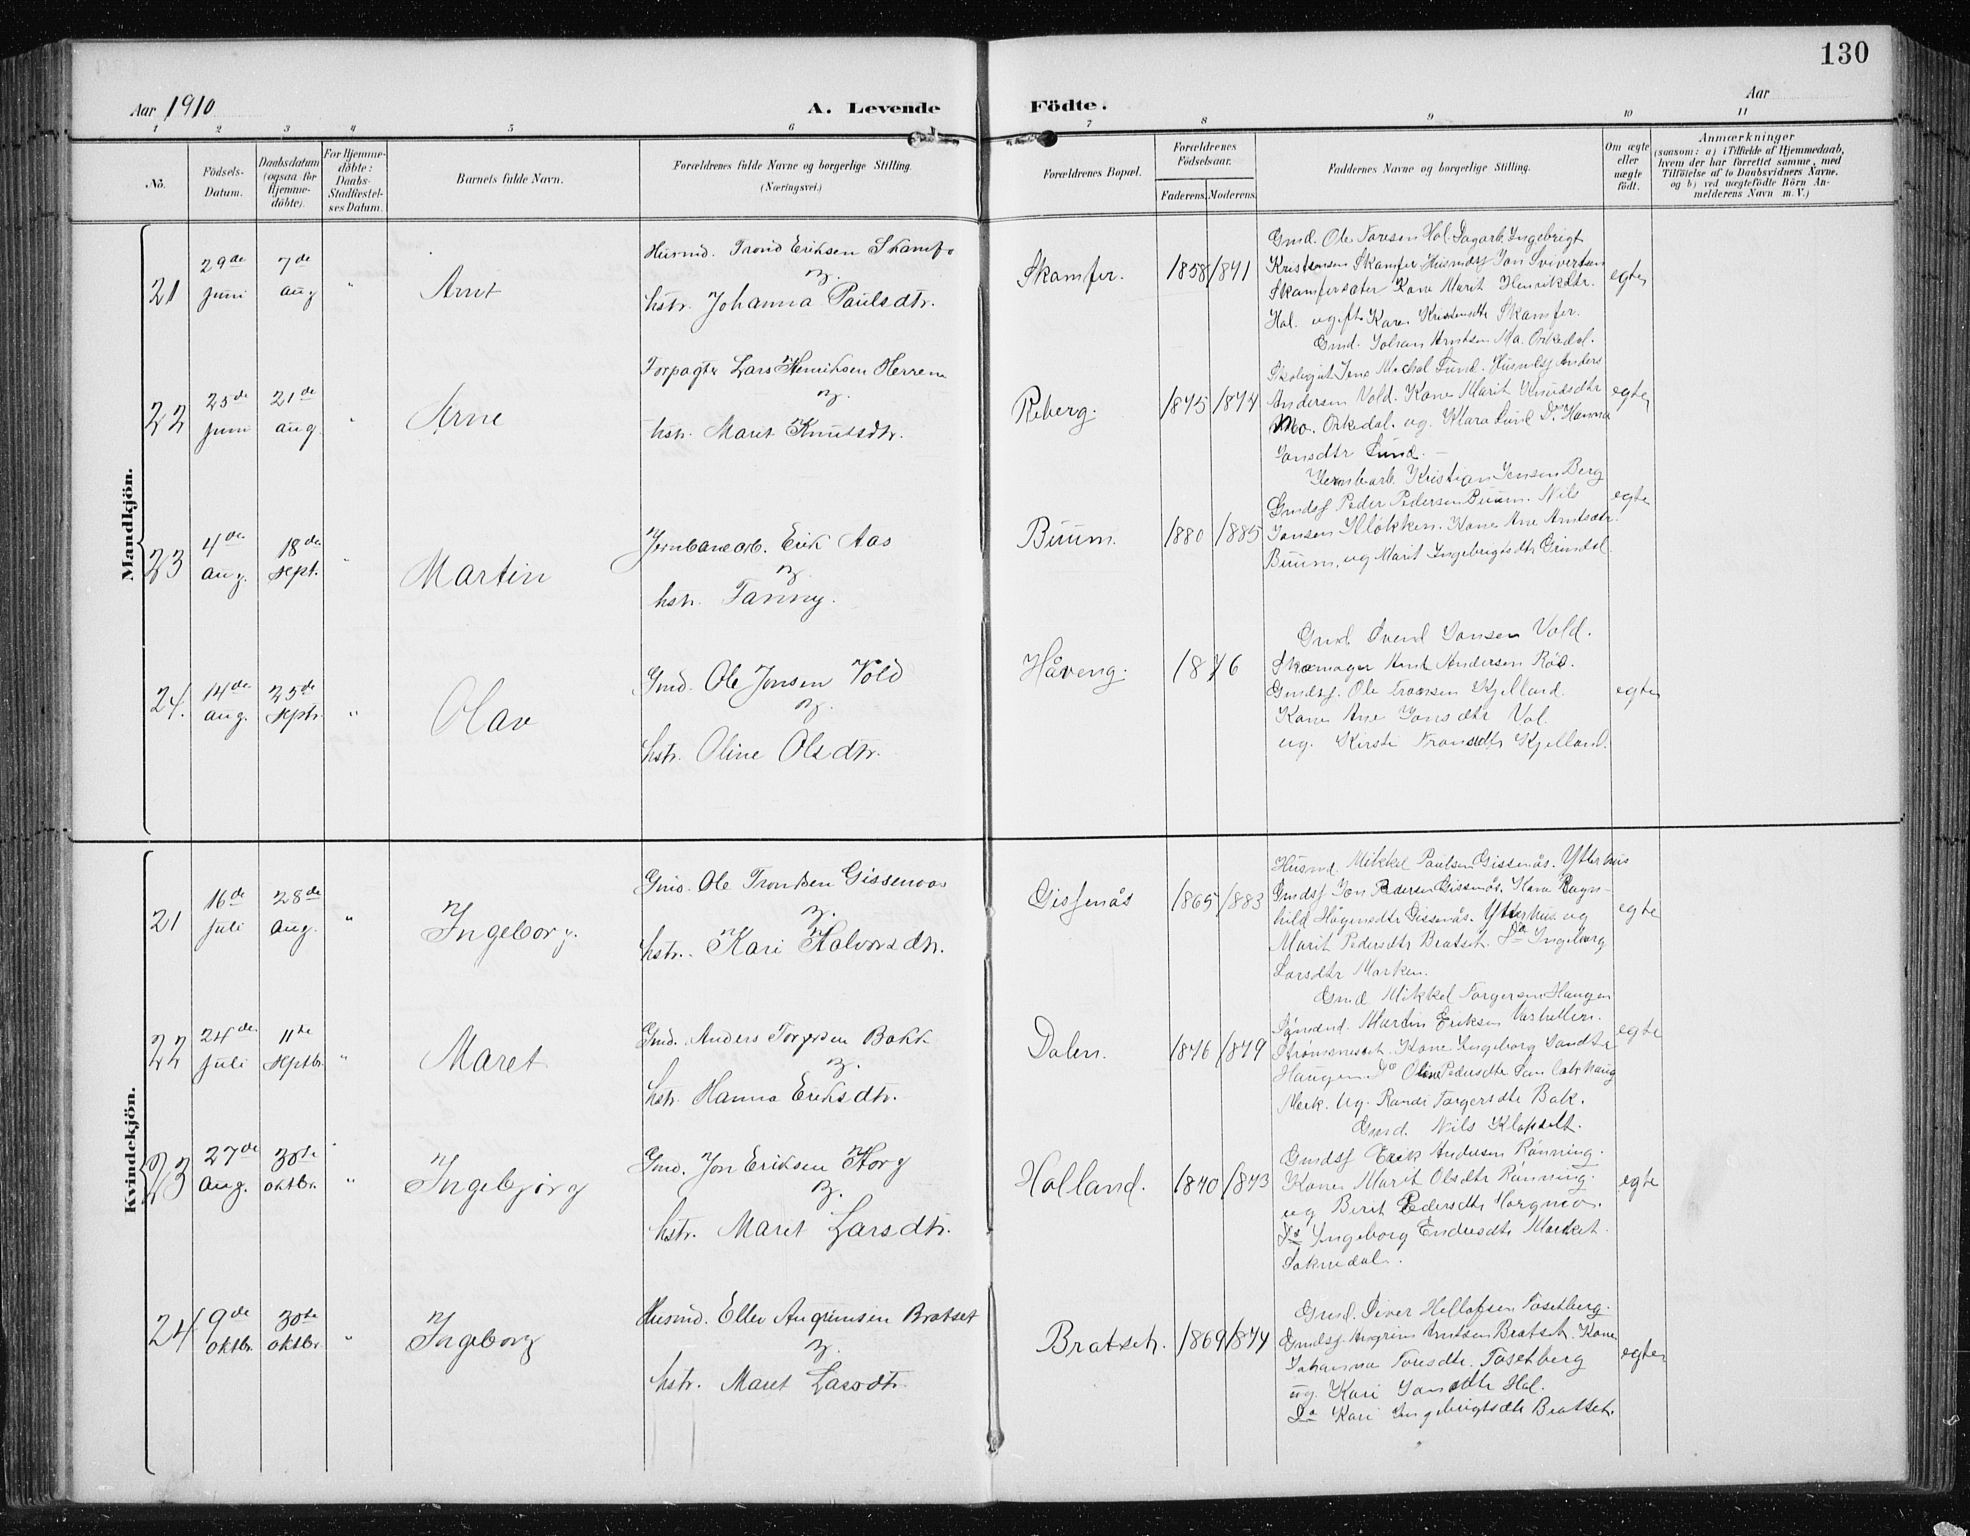 130
Aar 1910
A. Levende
Födte.
Aar
1 2 3 4 5 6 7 8 9 10 11
No.
Födsels-
Datum.
Daabsdatum
(ogsaa for
Hjemme-
döbte).
For Hjemme-
döbte:
Daabs-
Stadfæstel-
ses Datum.
Barnets fulde Navn.
Forældrenes fulde Navne og borgerlige Stilling.
(Næringsvei.)
Forældrenes Bopæl.
Forældrenes
Födselsaar.
Faderens. Moderens.
Faddernes Navne og borgerlige Stilling.
Om ægte
eller
uægte
födt.
Anmærkninger
(saasom: a) i Tilfælde af Hjemmedaab,
hvem der har forrettet samme, med
Tilföielse af to Daabsvidners Navne.
og b) ved uægtefödte Börn An-
melderens Navn m. V.)
Mandkjön.
21
29de
Juni
7de
Aug
"
Arnt
Husmd. Trond Eriksen Skamfer
og
hstr. Johanna Paulsdtr.
Skamfer.
1858 1841
Gmd. Ole Hol. Dagarb. Ingebrigt
Kristensen Skamfer Husmdsf Jon Sivertsen
Skamfersæter Kone Marit Henrikdtr.
Hol. ugift Karen Kristensdtr Skamfer.
egte
22
25de
Juni
21de
Aug.
"
Arne
Forpagter Lars Henriksen Herrem
og
hstr. Maret Knutsdtr.
Reberg.
1875 1874
Gmd. Johan Arntsen Mo. Orkedal.
Jens Michal Lund. Husmdsf Anders
Andersen Vold. Kone Marit Knudsdtr
Mo. Orkedal. ug. Klara Lund Do Hanna
Jonsdtr Lund.
egte
23
4de
Aug.
18de
Sept.
"
Martin
Jernbanearb. Erik Aas
og
hstr. Fanny.
Buum.
1880 1885
Jernbarb. Kristian Jensen Berg
Gmdsf Peder Pedersen Buum. Nils
Jonsen Kløkken. Kone Ane Arntsdtr.
Buum, ug Marit Ingebrigtsdtr Grindal.
egte
24.
14de
Aug.
25de
Septr.
"
Olav
Gmd. Ole Jonsen Vold
og
hstr. Oline Olsdtr.
Håveng.
1876
Gmd. Svend Jonsen Vold.
Skomager Arnt Andersen Rød.
Gmdsf. Ole Tronsen Kjelland.
Kone Ane Jonsdtr Vol.
ug. Kirsti Tronsdtr Kjelland.
egte
Kvindekjön.
21
16de
Juli
28de
Aug.
"
Ingeborg.
Gmd. Ole Trondsen Gissenaas
og.
hstr. Kari Halvorsdtr.
Gissenås
1865 1883
Husmd. Mikkel Paulsen Gissenås. Ytterhus
Gmdsf Jon Pedersen Gissenås. Kone Ragn-
hild Hågensdtr Gissenås. Ytterhus. ug
Marit Pedersdtr Bratset. Do Ingeborg
Larsdtr Marken.
egte
22
24de
Juli
11te
Septbr.
"
Maret
Gmd. Anders Torgersen Bakk
og.
hstr. Hanna Eriksdtr.
Dalen.
1876 1879
Gmd Mikkel Torgersen Haugen
Martin Eriksen
Kone Ingeborg
Haugen Do Oline Pedersdtr
Merk. ug. Randi Torgersdtr Bak.
egte
23
27de
Aug.
30te
Oktbr.
"
Ingebjørg
Gmd. Jon Eriksen Horg
og.
hstr. Maret Larsdtr.
Holland.
1870 1873
Gmd. Nils Klopset.
Gmdsf Erik Andersen Rønning.
Kone Marit Olsdtr Rønning.
ug Berit Pedersdtr Horgmo.
Do Ingeborg Endresdtr
Soknedal.
egte
24
9de
Oktbr.
30te
Oktbr.
"
Ingeborg
Husmd. Ellev Angrimsen Bratset
og.
hstr. Maret Larsdtr.
Bratset.
1869 1874
Gmd. Siver Tosetberg.
Gmdsf Angrim Arntsen Bratset. Kone
Johanna Tosetberg
ug. Kari Jonsdtr Hol.
Do Kari Ingebrigtsdtr Bratset.
egte